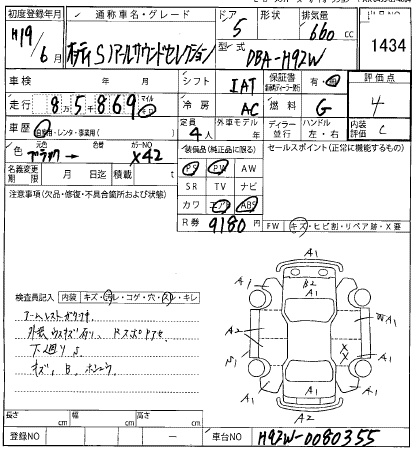 初度登録年月 通称車名・グレード ドア 形状 排気量
H19/6月 オッティ Sリアルサウンドセレクション 5 660 cc 1434
型式 DBA-H92W
車検 年 月 シフト IAT 保証書 有・無 評価点
走行 85869 マイル Km 冷房 AC 燃料 G 4
車歴 自家用・レンタ・事業用( ) 定員 4人 外車モデル 年 ディーラー 並行 ハンドル 左・右 内装評価 C
色 元色 ブラック → 色替 カラーNO X42
装備品(純正品に限る) セールスポイント(正常に機能するもの)
名義変更期限 月 日迄 積載 t
PS PW AW
注意事項(欠品・修復・不具合箇所および状態)
SR TV ナビ
カワ エアB ABS
R券 9180円
FW キズ・ヒビ割・リペア跡・X要
検査員記入 内装 キズ・汚レ・コゲ・穴・スレ・キレ
外装ウスキズ有り
下廻りS
キズ、B
A1
A1 B2 A1
A1 A1
A2 X W A1
X
A1 A1 A1
A2
長さ cm 幅 cm 高さ cm
登録NO — 車台NO H92W-0080355